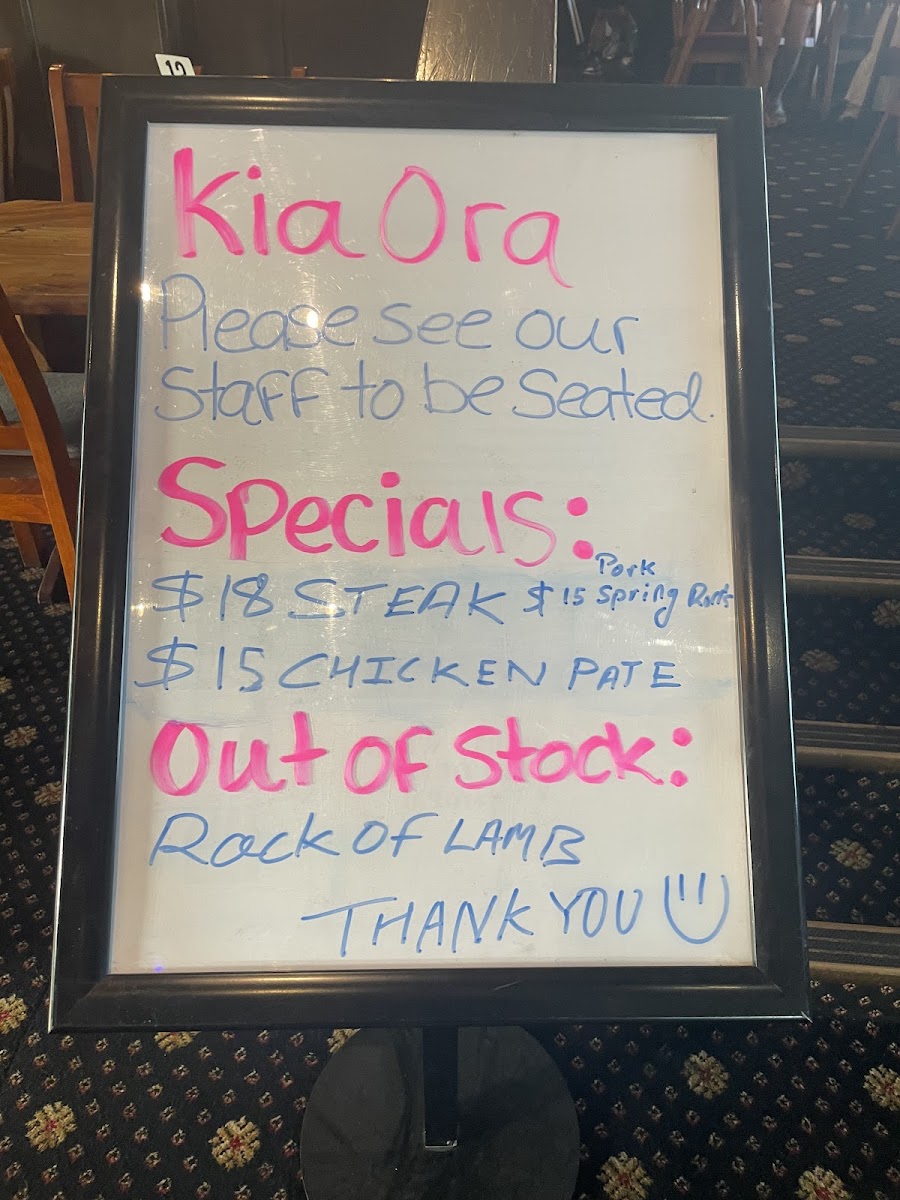 12
Kia Ora
Please see our
Staff to be Seated.
Specials:
$18 STEAK $15 Pork Spring
$15 CHICKEN PATE
Out of Stock:
Rack OF LAMB
THANK YOU